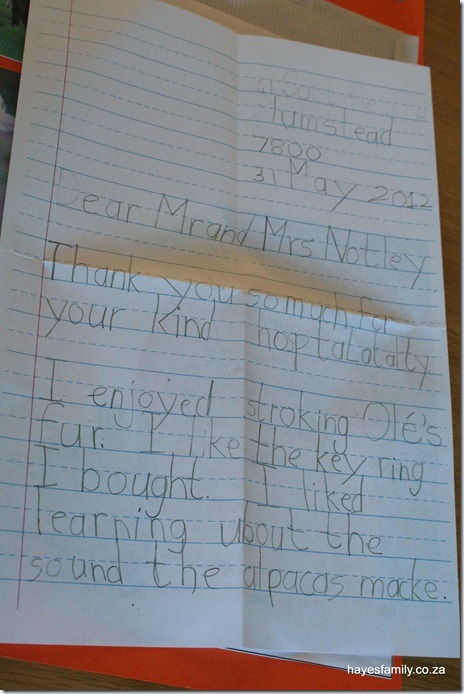 41
Plumstead
7800
31 May 2012
Dear Mr and Mrs Notley
Thank you so much for
your kind hoptalatatty
I enjoyed stroking Olé's
fur. I like the key ring
I bought. I liked
learning ubout the
sound the alpacas macke.
hayesfamily.co.za